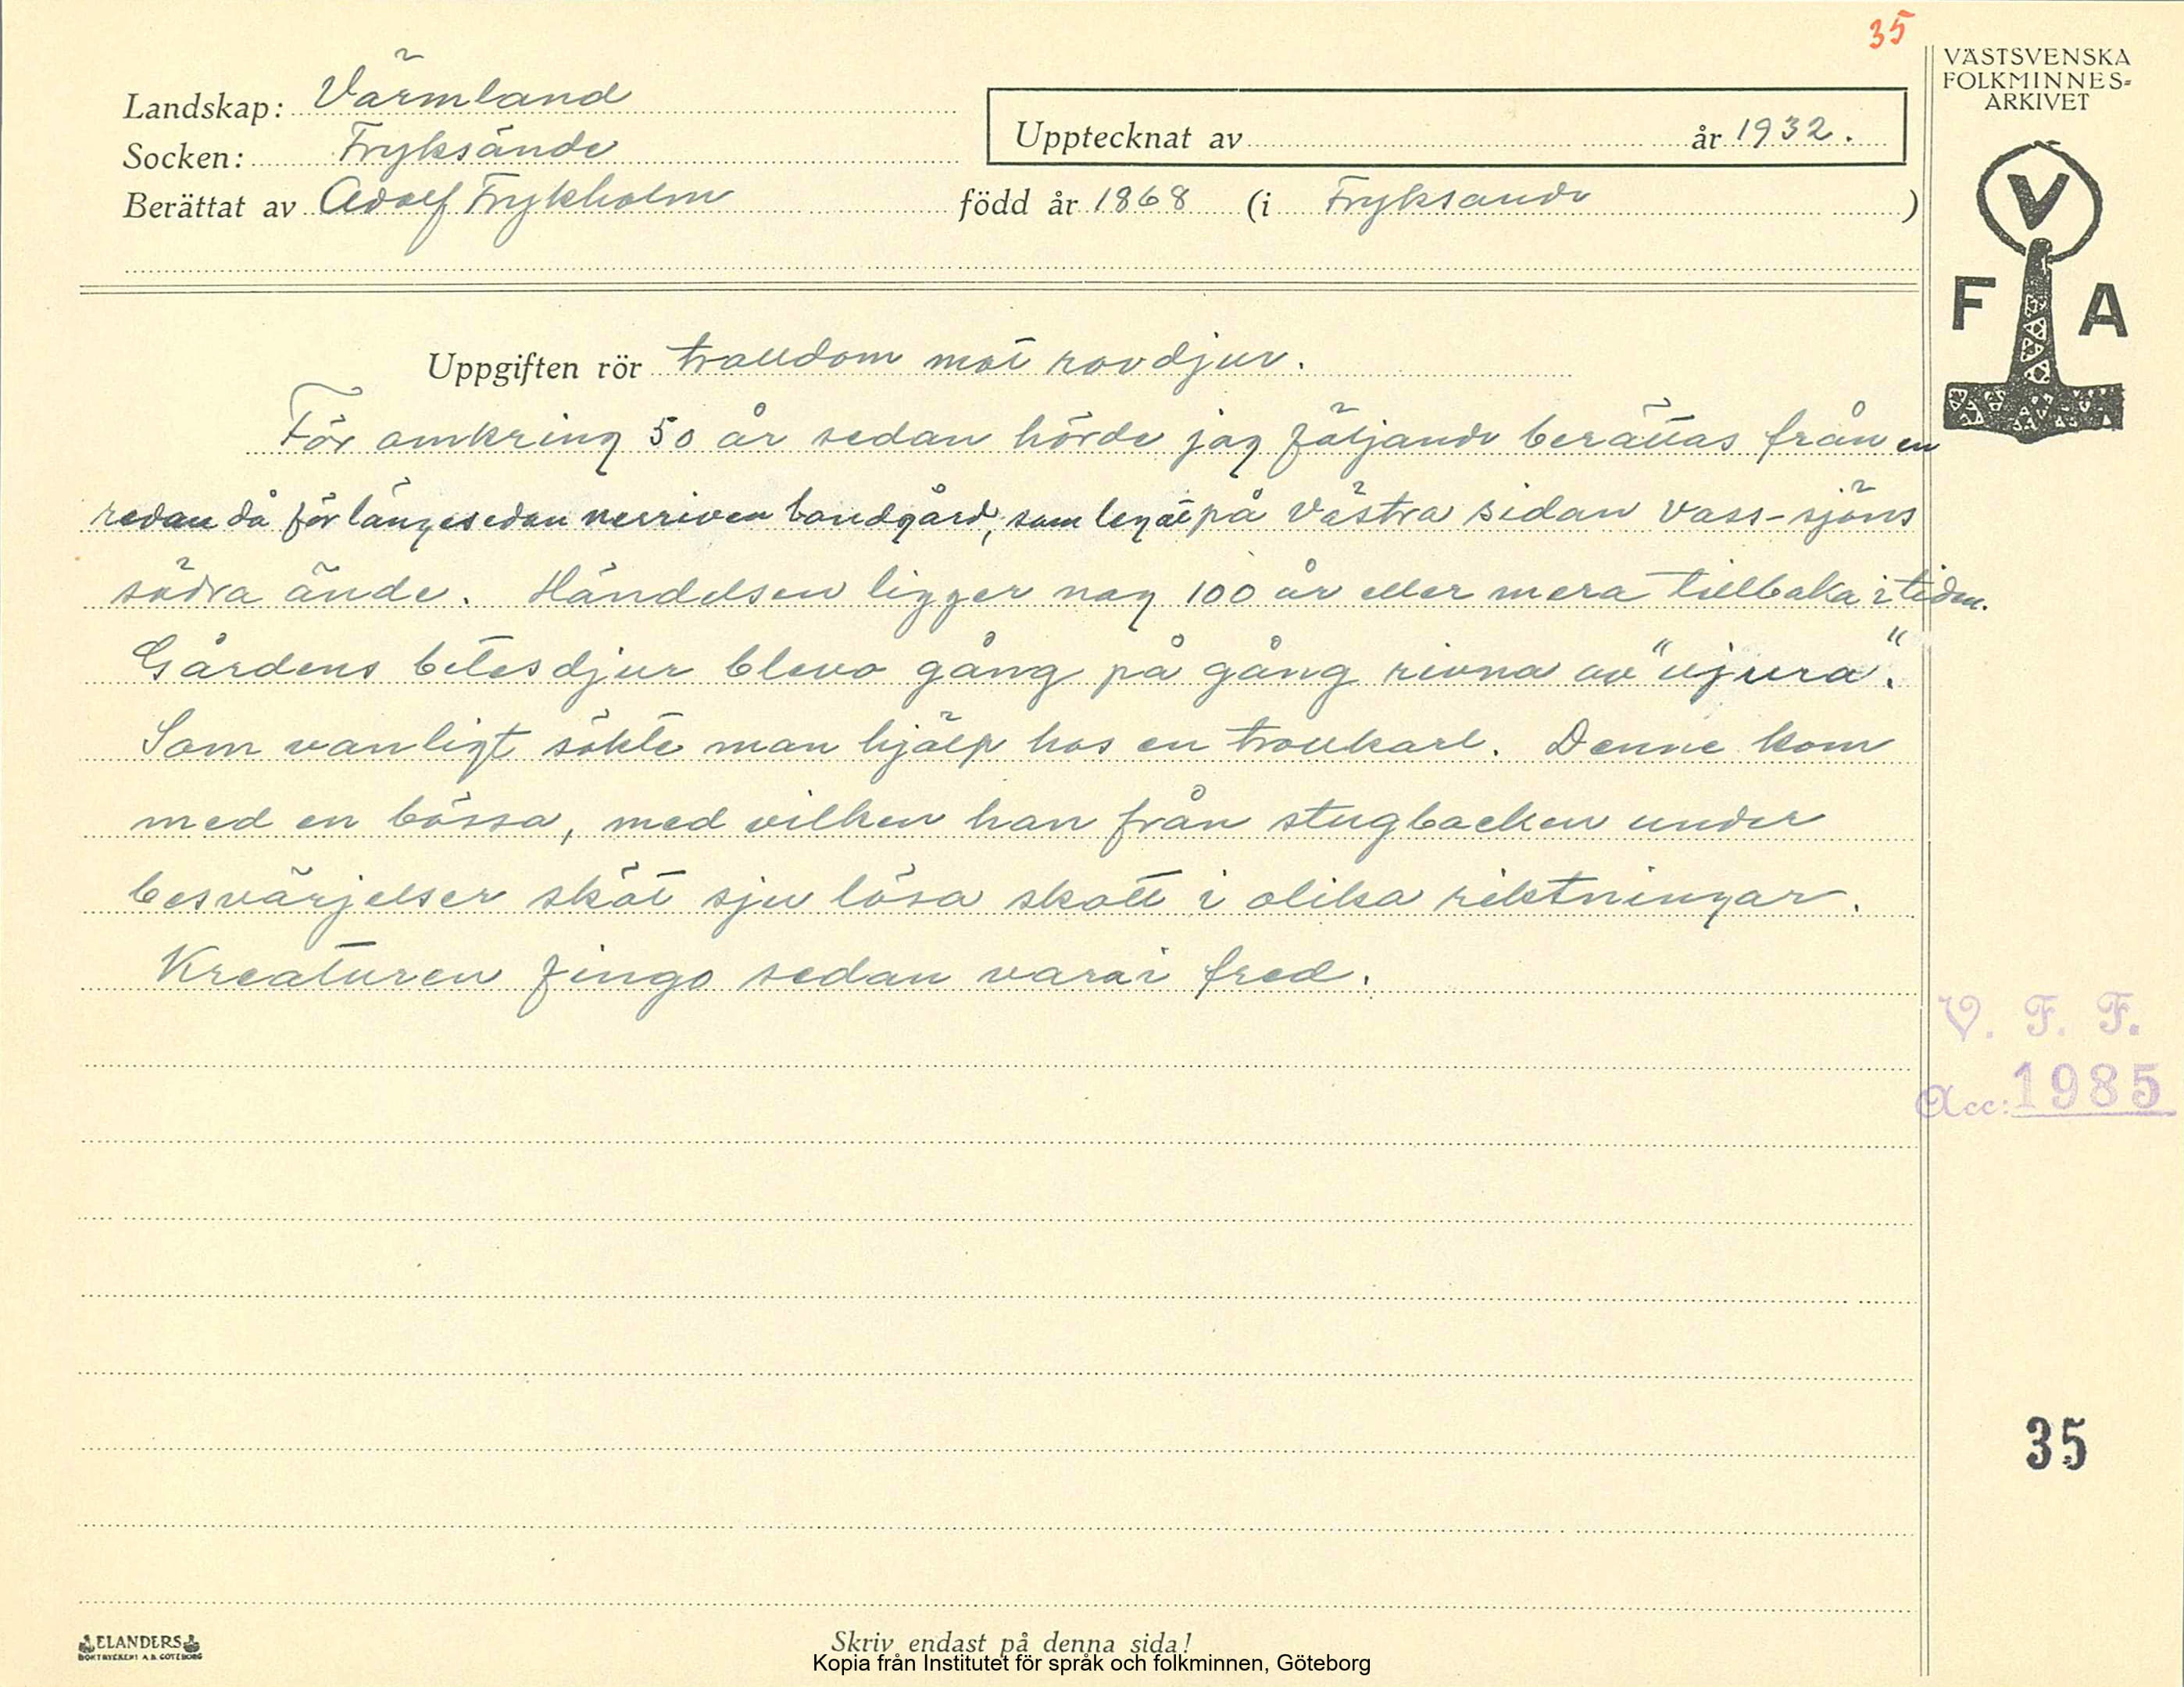 35
VÄSTSVENSKA
FOLKMINNES=
ARKIVET
Landskap: Värmland
Socken: Fryksände
Upptecknat av år 1932.
Berättat av Adolf Frykholm född år 1868 (i Fryksande )
V
F A
Uppgiften rör trolldom mot rovdjur.
För omkring 50 år sedan hörde jag följande berättas från en
redan då för länge sedan nerriven bondgård, som legat på Västra sidan Vass-sjöns
södra ände. Händelsen ligger nog 100 år eller mera tillbaka i tiden.
Gårdens betesdjur blevo gång på gång rivna av "ujura".
Som vanligt sökte man hjälp hos en trollkarl. Denne kom
med en bössa, med vilken han från stugbacken under
besvärjelser sköt sju lösa skott i olika riktningar.
Kreaturen fingo sedan vara i fred.
V. F. F.
Acc: 1985
35
ELANDERS
BOKTRYCKERI A.B. GÖTEBORG
Skriv endast på denna sida!
Kopia från Institutet för språk och folkminnen, Göteborg